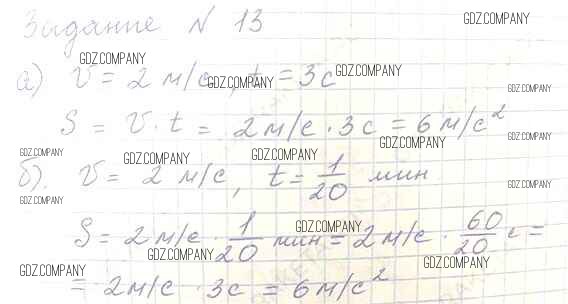 Задание N 13
GDZ.COMPANY
GDZ.COMPANY GDZ.COMPANY
а) V = 2 м/с, t = 3с
GDZ.COMPANY GDZ.COMPANY
S = V · t = 2 м/с · 3с = 6 м/с²
GDZ.COMPANY GDZ.COMPANY
GDZ.COMPANY GDZ.COMPANY GDZ.COMPANY
б). V = 2 м/с, t = 1/20 мин
GDZ.COMPANY GDZ.COMPANY
S = 2 м/с · 1/20 мин = 2 м/с · 60/20 с =
GDZ.COMPANY GDZ.COMPANY
GDZ.COMPANY GDZ.COMPANY
= 2 м/с · 3с = 6 м/с²